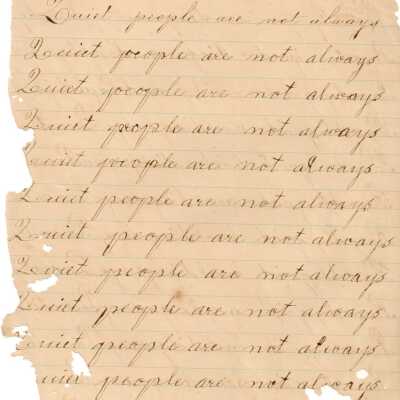 Quiet people are not always
Quiet people are not always
Quiet people are not always
Quiet people are not always
Quiet people are not always
Quiet people are not always
Quiet people are not always
Quiet people are not always
Quiet people are not always
Quiet people are not always
Quiet people are not always